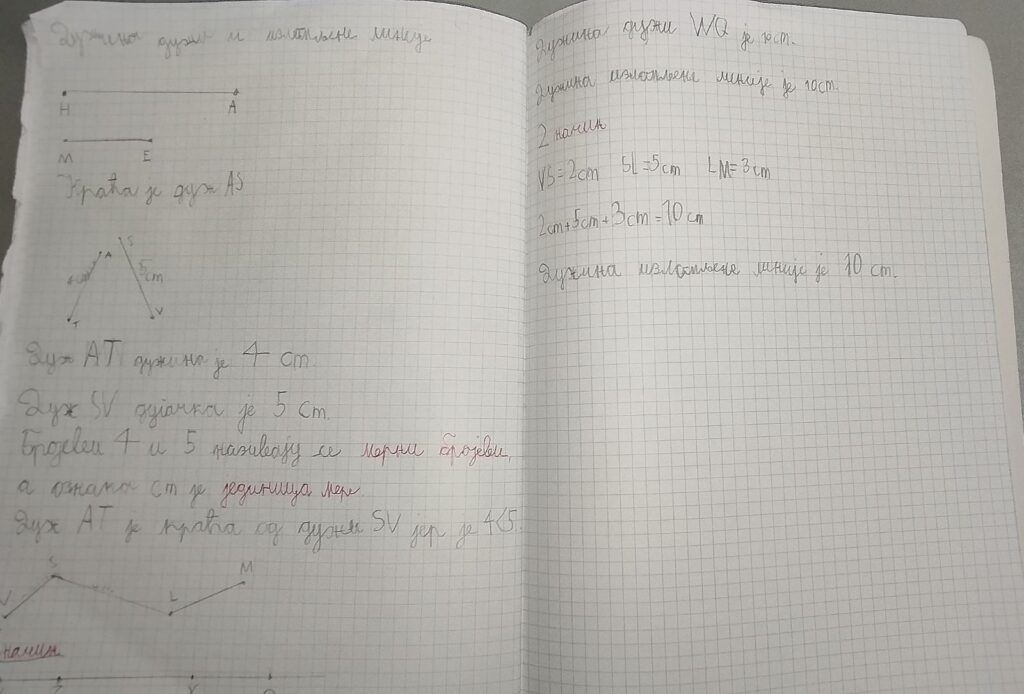 Дужина дужи и изломљене линије
H A
M E
Краћа је дуж AS
A S
4cm 5cm
T V
Дуж AT дужина је 4 cm.
Дуж SV је 5 cm.
Бројеви 4 и 5 називају се мерни бројеви,
а ознака cm је јединица мере.
Дуж AT је краћа од дужи SV јер је 4<5.
V S L M
начин
Дужина дужи WQ је 10cm.
Дужина изломљене линије је 10cm.
2 начин
VS=2cm SL=5cm LM=3cm
2cm+5cm+3cm=10cm
Дужина изломљене линије је 10 cm.